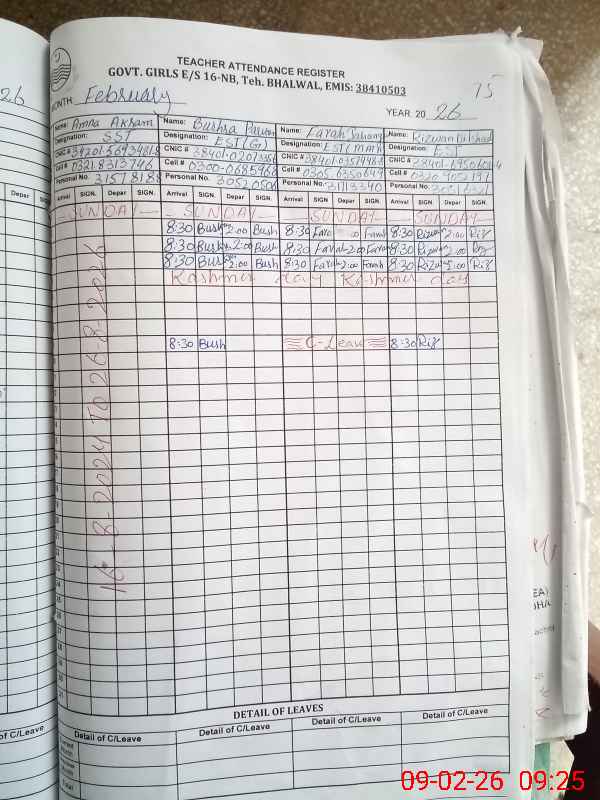 TEACHER ATTENDANCE REGISTER
GOVT. GIRLS E/S 16-NB, Teh. BHALWAL, EMIS: 38410503
75
MONTH February
YEAR 2026
Name: Amna Akram Name: Bushra Name: Farah Name: Rizwan
Designation: SST Designation: EST(G) Designation: EST(Math) Designation: EST
CNIC # CNIC # CNIC # CNIC #
Cell # 0321 8313746 Cell # 0300-0685966 Cell # Cell #
Personal No. 31578188 Personal No. Personal No. Personal No.
Depar SIGN. Arrival SIGN. Depar SIGN. Arrival SIGN. Depar SIGN. Arrival SIGN. Depar SIGN. Arrival SIGN. Depar SIGN.
SUNDAY SUNDAY SUNDAY SUNDAY
8:30 Bush 2:00 Bush 8:30 Fara Farah 8:30 Rizwan 2:00 Riz
8:30 Bush 2:00 Bush 8:30 Farah 2:00 Farah 8:30 Rizwan 2:00 Riz
8:30 Bush 2:00 Bush 8:30 Farah 2:00 Farah 8:30 Rizwan 2:00 Riz
Kashmir day Kashmir day
8:30 Bush C-Leave 8:30 Riz
16-8-2024 TO 26-8-2026
DETAIL OF LEAVES
Detail of C/Leave Detail of C/Leave Detail of C/Leave Detail of C/Leave
Total
09-02-26 09:25